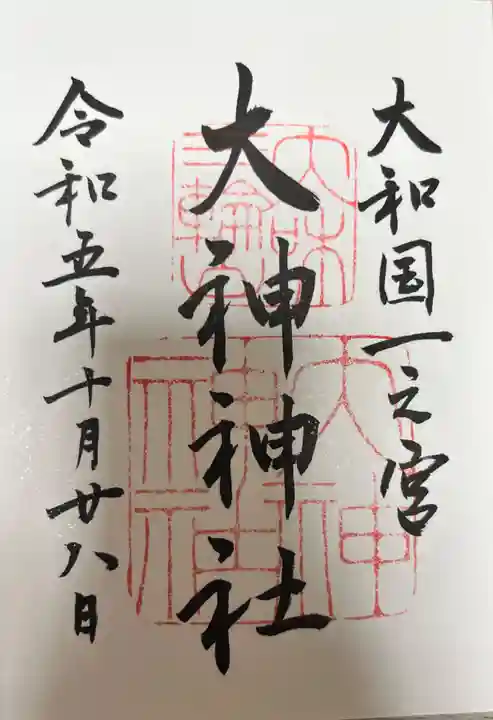 大和国一之宮
大神神社
令和五年十月廿八日
大神
神社